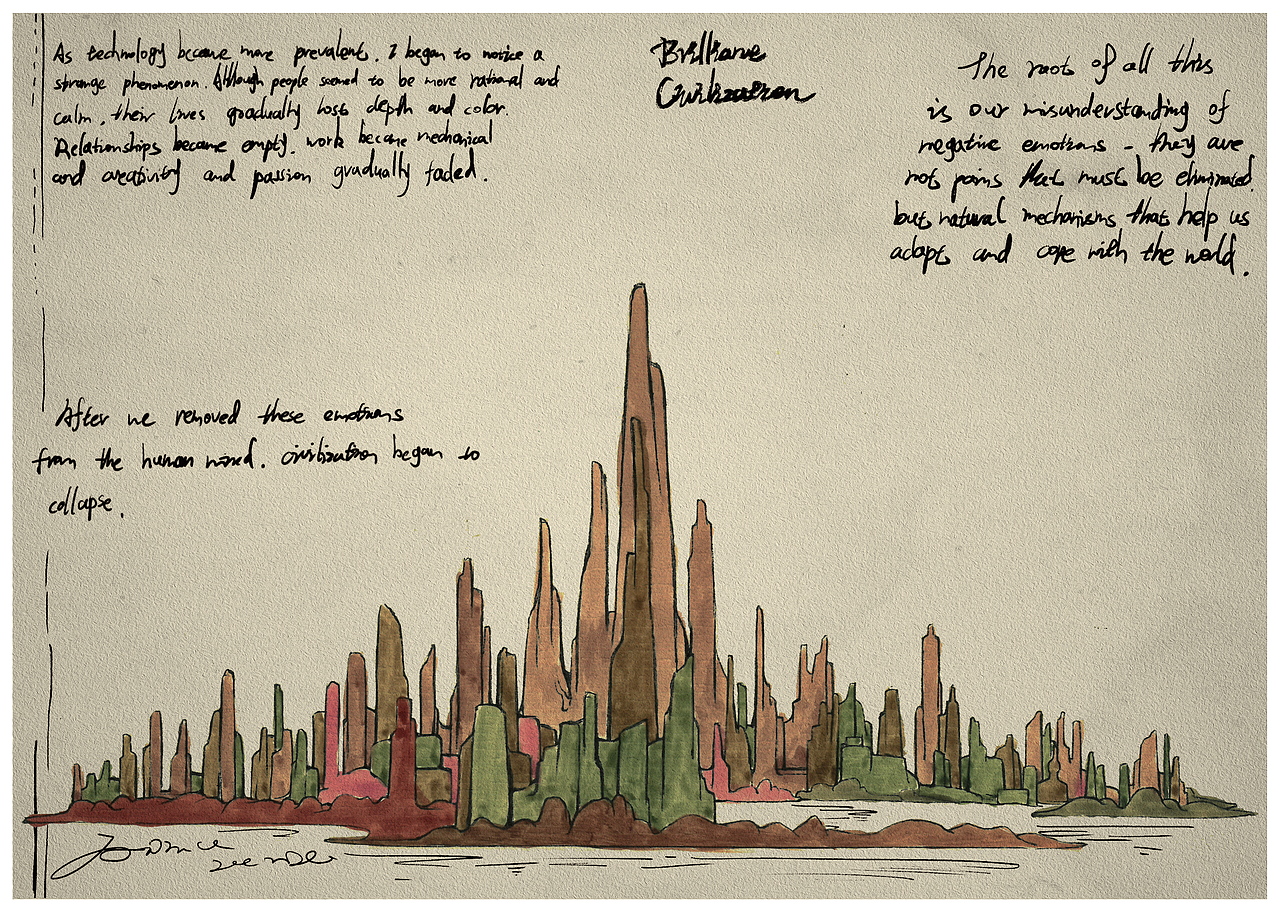 As technology became more prevalent, I began to notice a
strange phenomenon. Although people seemed to be more rational and
calm, their lives gradually lost depth and color.
Relationships became empty, work became mechanical
and creativity and passion gradually faded.
Brilliane
Civilization
The root of all this
is our misunderstanding of
negative emotions - they are
not pains that must be eliminated,
but natural mechanisms that help us
adapt and cope with the world.
After we removed these emotions
from the human mind, civilization began to
collapse.